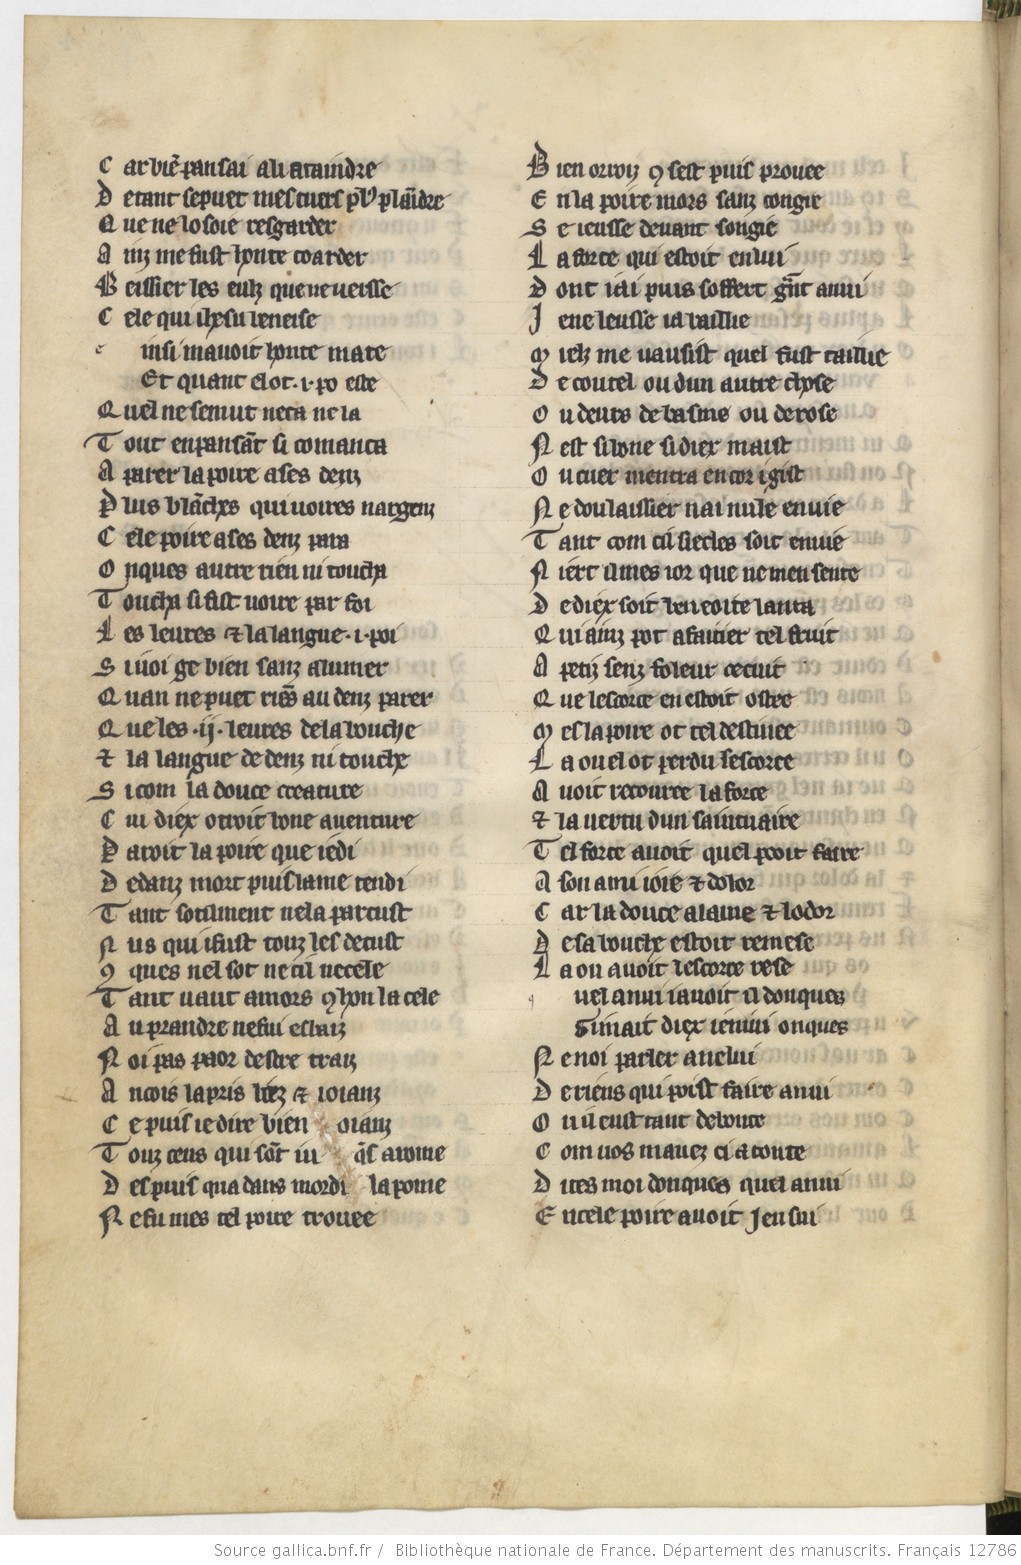 C ar biē pansai a li ataindre
D e tant se puet mes cuers pl' plaīdre
Q ue ne lo soie resgarder
A inz me fust honte coarder
B eissier les eulz que ne veisse
C ele qui ihesu beneise
e insi mavoit honte mate
Et quant el ot .i. po este
Q uel ne semut neca ne la
T out en pansāt si comanca
A parer la poire a ses denz
P lus blāches qui voires nargenz
C ele poire a ses denz para
O nques autre rien ni toucha
T oucha si fist voire par foi
L es leures ⁊ la langue .i. poi
S i voi ge bien sanz alumer
Q uan ne puet riēs au denz parer
Q ue les .ij. leures de la bouche
⁊ la langue dedenz ni touche
S i com la douce creature
C ui diex otroit bone auenture
P aroit la poire que ie di
D edanz mort puis la me tendi
T ant sotilment ne la parcust
N us qui i fust touz les decust
ꝯ ques nel sot ne cil ne cele
T ant vaut amors ꝯ hon la cele
A u prandre ne fui eslaiz
N oi pas paor destre traiz
A ncois la pris liez ⁊ ioianz
C e puis ie dire bien oianz
T ouz ceus qui sōt
D es puis qua dans mordi la pome
N e fu mes tel poire trouee
B ien orroiz ꝯ sest puis prouee
E n la poire mors sanz congie
S e ieusse deuant songie
L a force qui estoit en lui
D ont iai puis soffert grāt anui
J e ne leusse ia baillie
M ielz me vausist quel fust taillie
D e coutel ou dun autre chose
O u deurs de basme ou de rose
N est si bone si diex maist
O u cuer mentra encor i gist
N e dou laissier nai nule enuie
T ant com cil siecles soit en vie
N iert a mes ior que ne men sente
D e diex soit beneoite lanta
Q ui ainz pot afaitier tel fruit
A petiz senz foleur ce cuit
Q ue lescorce en estoit ostee
M es la poire ot tel destinee
L a ou el ot perdu sescorce
A uoit recouree la force
⁊ la vertu dun saintuaire
T el force auoit quel pooit faire
A son ami ioie ⁊ dolor
C ar la douce alaine ⁊ lodor
D e sa bouche estoit remese
L a ou auoit lescorce rese
q uel anui i auoit il donques
Si mait diex ie nui onques
N e noi parler a nelui
D e riens qui poist faire anui
O n il eust tant de bonte
C om vos mauez ci aconte
D ites moi donques quel anui
E n cele poire auoit Jen sui